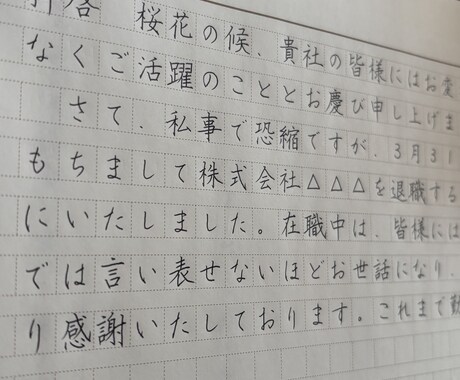 拝啓 桜花の候、貴社の皆様にはお変
なくご活躍のこととお慶び申し上げま
さて、私事で恐縮ですが、3月31
もちまして株式会社△△△を退職する
にいたしました。在職中は、皆様には
では言い表せないほどお世話になり、
り感謝いたしております。これまで勤